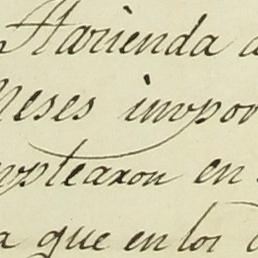 Hacienda a
Meses impor
mplearon en
a que en los